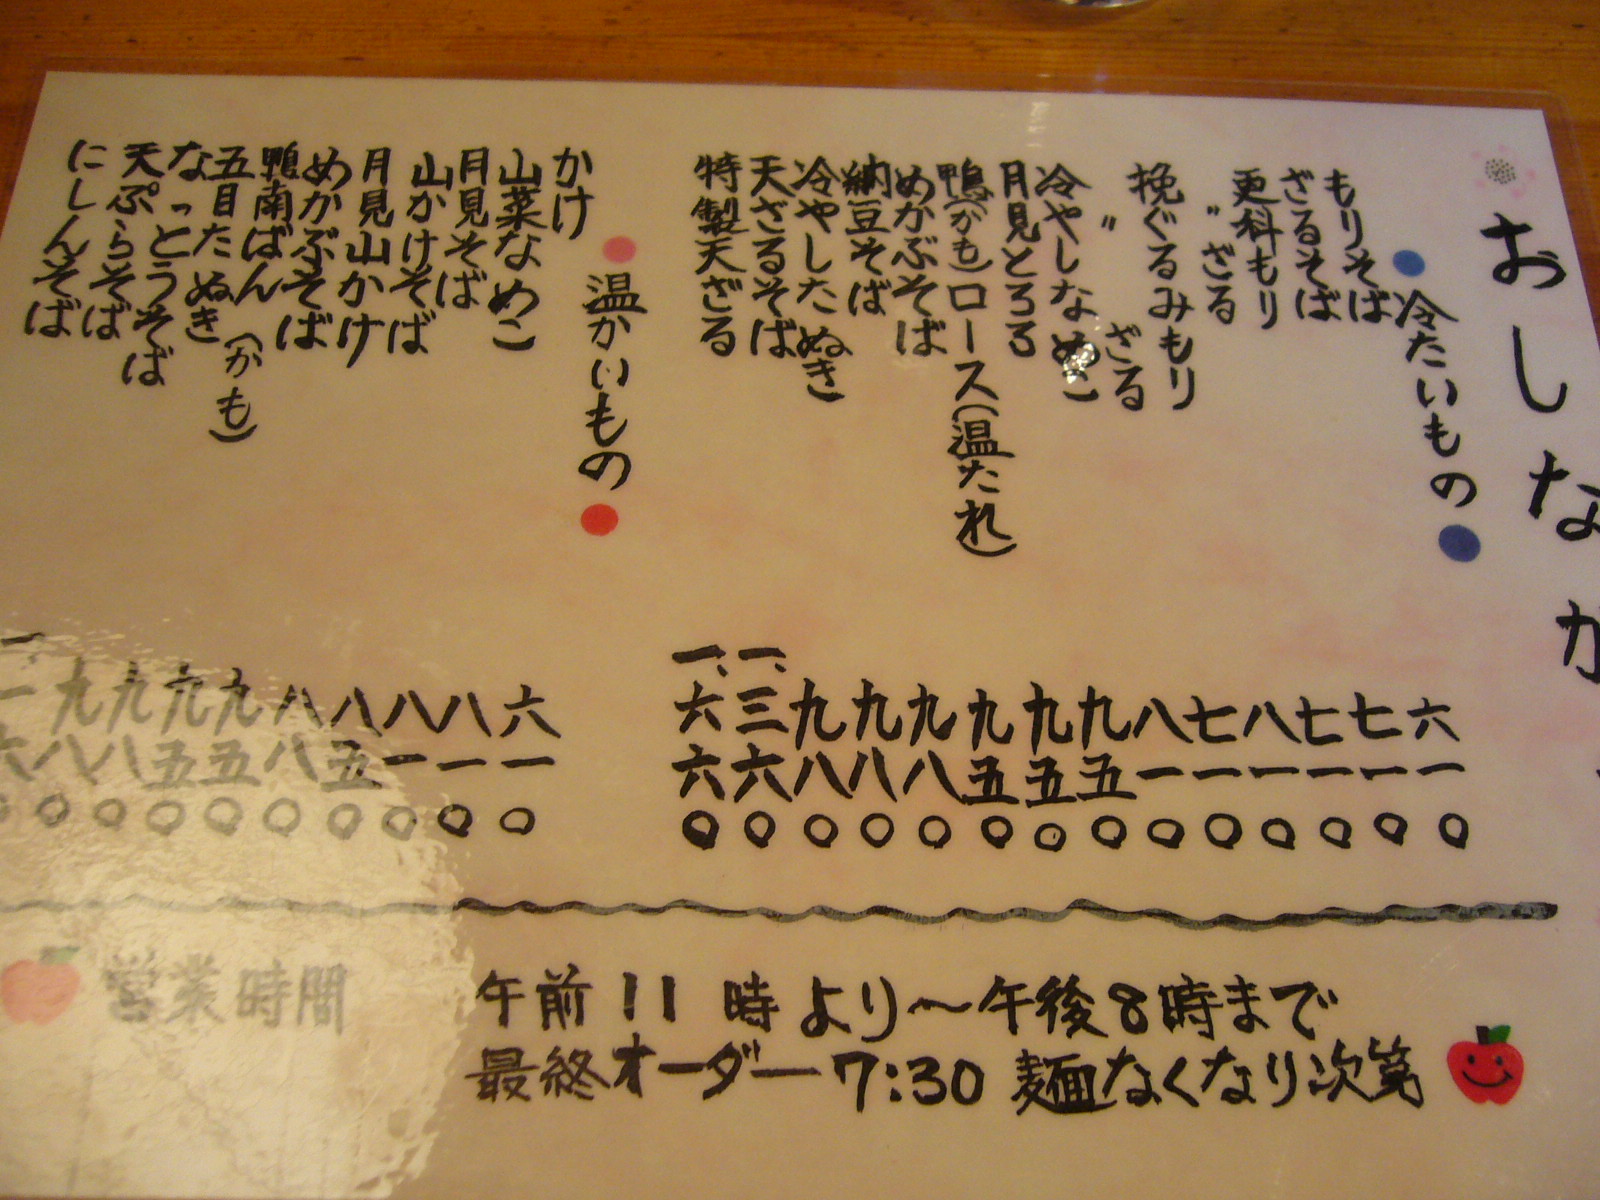 おしなが
冷たいもの
もりそば 六一〇
ざるそば 七一〇
更科もり 七一〇
〃 ざる 八一〇
挽ぐるみもり 七一〇
〃 ざる 八一〇
冷やしなめこ 九五〇
月見とろろ 九五〇
鴨(かも)ロース(温たれ) 九五〇
めかぶそば 九八〇
納豆そば 九八〇
冷やしたぬき 九八〇
天ざるそば 一、三六〇
特製天ざる 一、六六〇
温かいもの
かけ 六一〇
山菜なめこ 八一〇
月見そば 八一〇
山かけそば 八五〇
月見山かけ 八八〇
めかぶそば 九五〇
鴨南ばん(かも) 九五〇
五目たぬき 九八〇
なっとうそば 九八〇
天ぷらそば
にしんそば
営業時間 午前11時より〜午後8時まで
最終オーダー7:30 麺なくなり次第